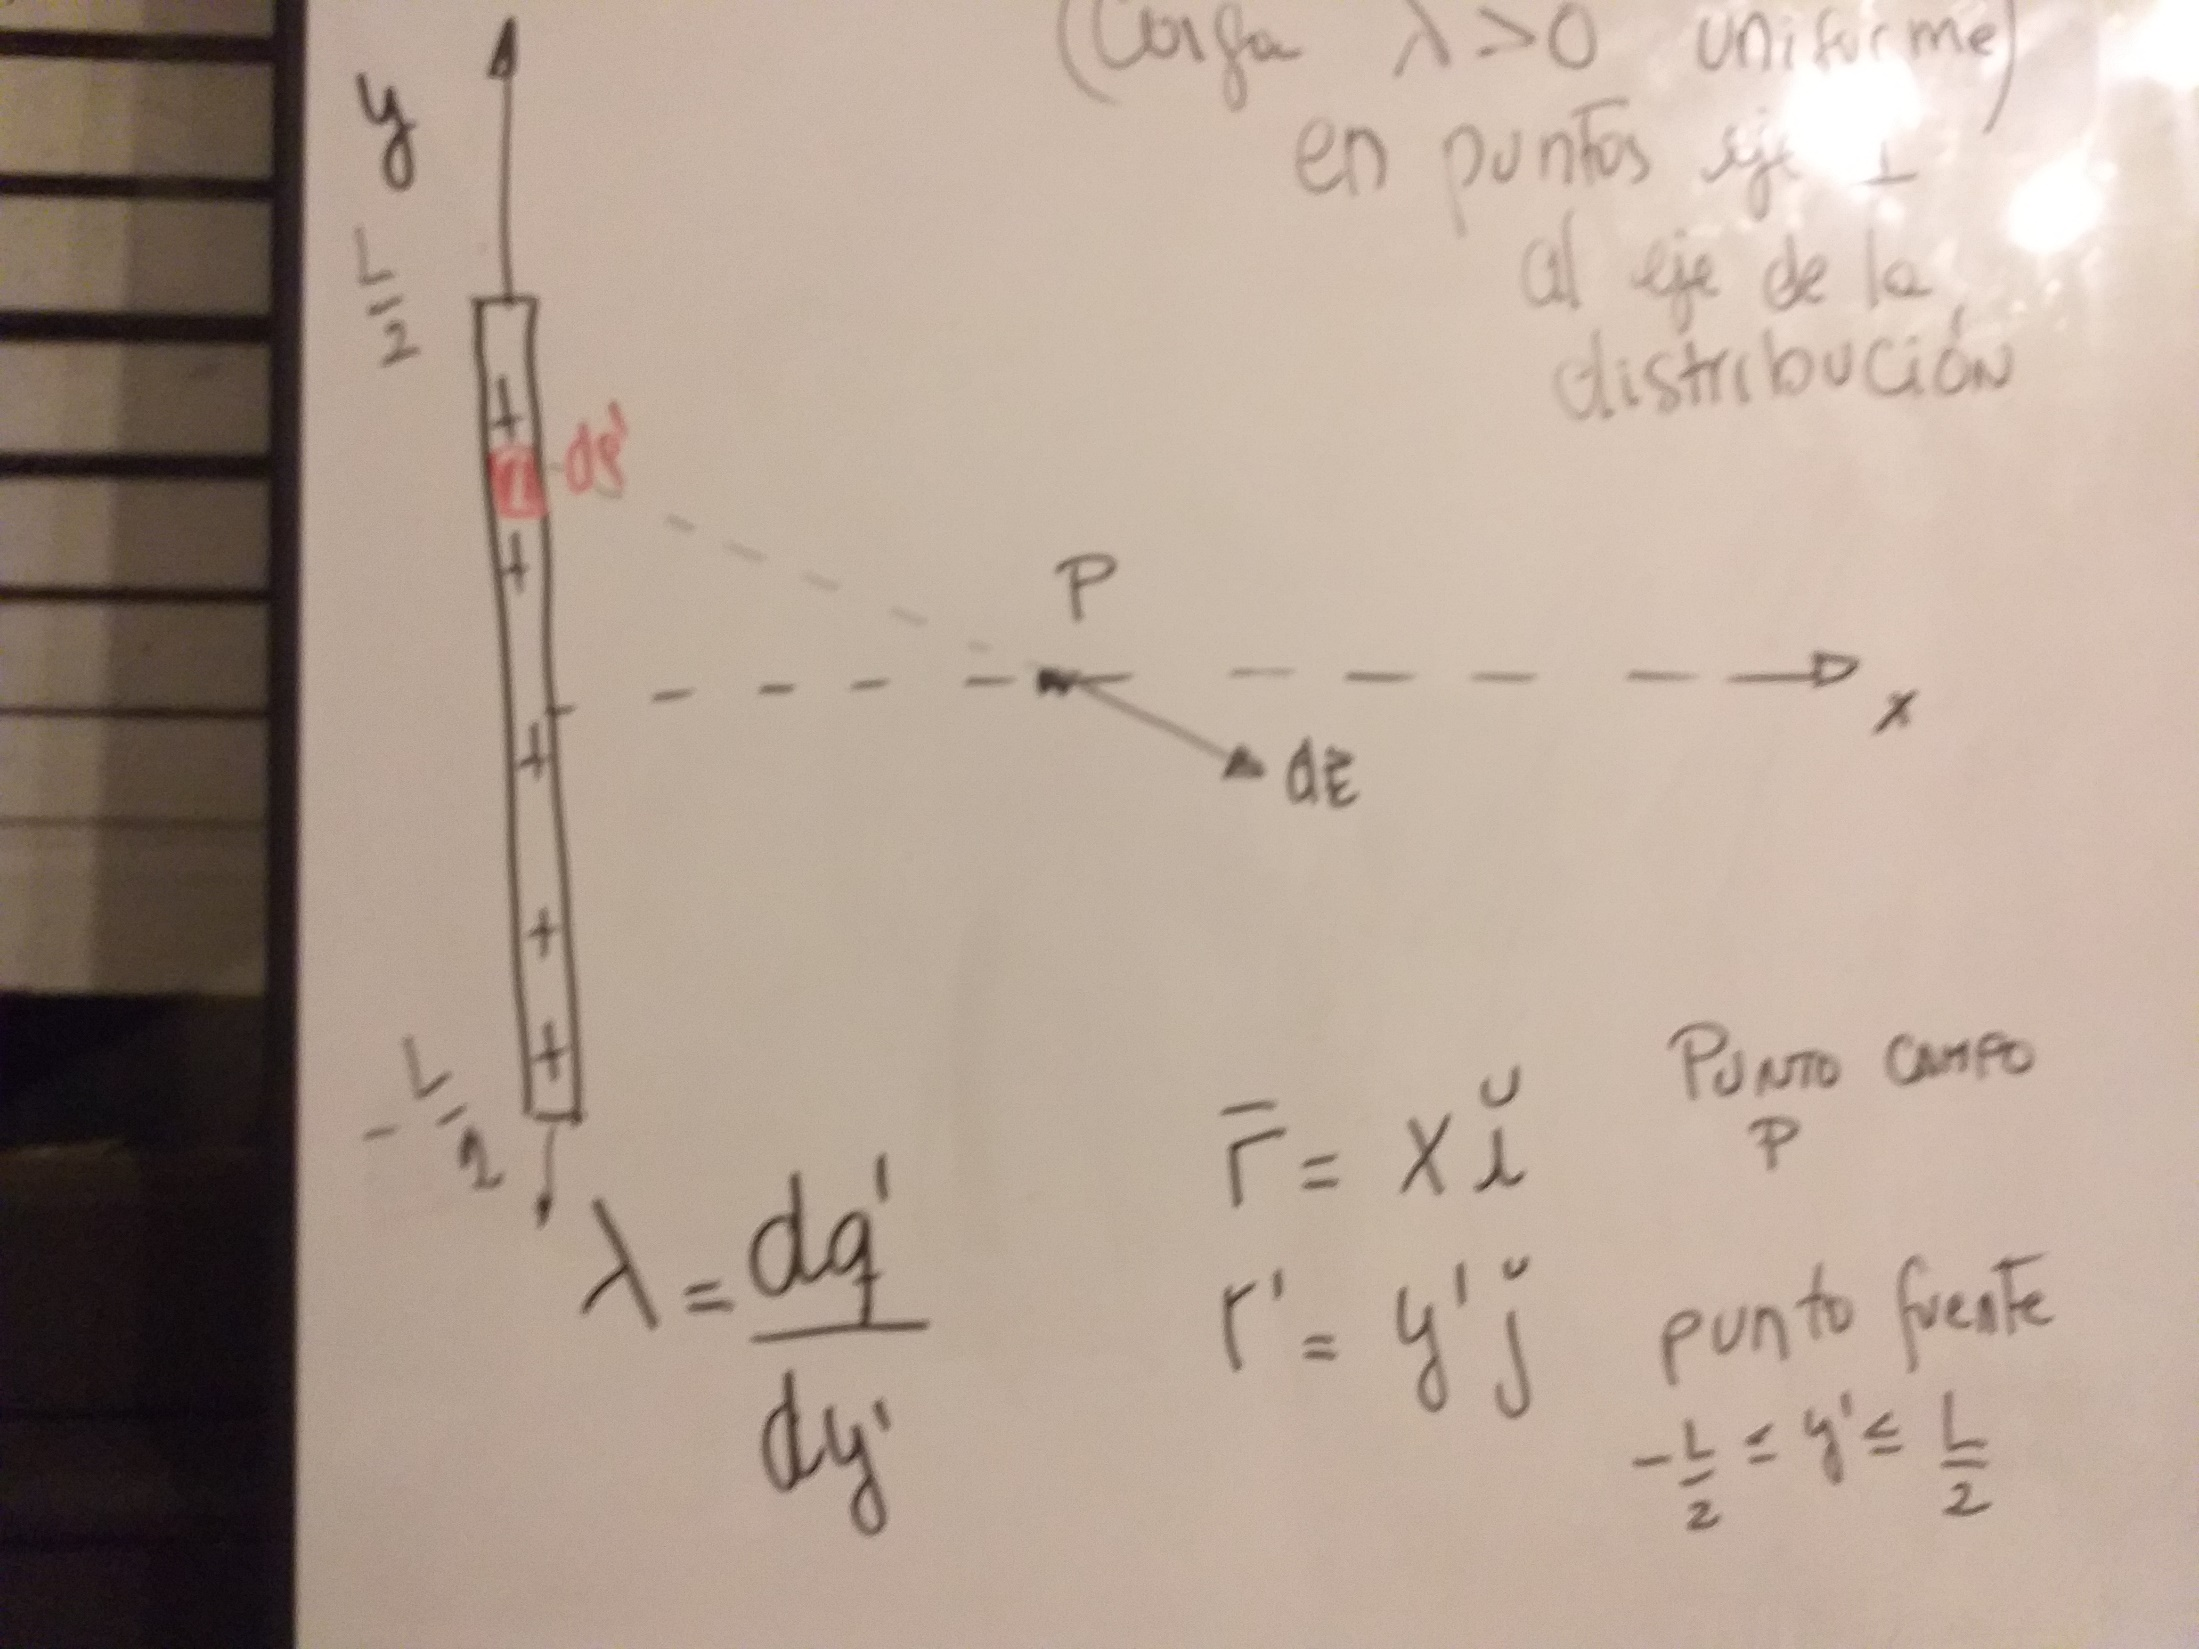 (Carga λ>0 uniforme)
en puntos eje ⊥
al eje de la
distribución
y
L/2
+
dq'
+
P
x
+
dE
+
+
-L/2
r̄ = x ǐ Punto campo
P
λ = dq'/dy'
r' = y' ǰ punto fuente
-L/2 ≤ y' ≤ L/2